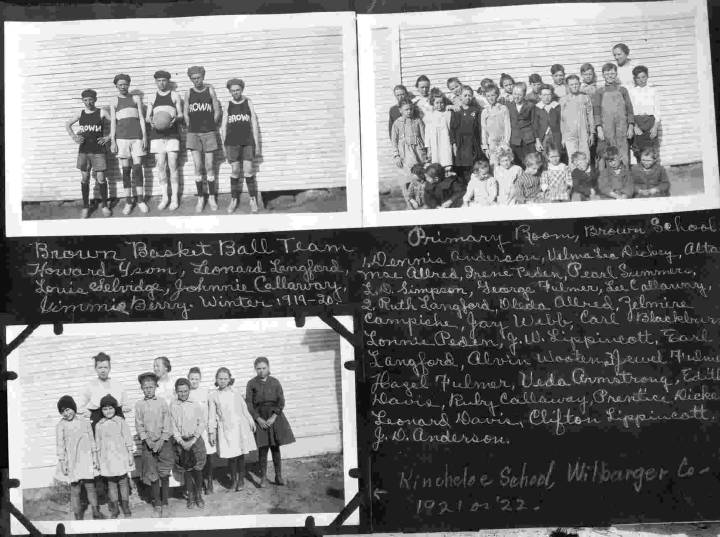 BROWN
BROWN
BROWN
Brown Basket Ball Team
Howard Ysom, Leonard Langford,
Louis Selvidge, Johnnie Callaway,
Jimmie Berry. Winter 1919-20.
Primary Room, Brown School
1, Dennis Anderson, Velma Lea Dickey, Alta
Mae Allred, Irene Peden, Pearl Summers,
L.D. Simpson, George Fulmer, Lee Callaway,
2. Ruth Langford, Oleda Allred, Zelmire
Campishe, Jay Webb, Carl Blackburn
Lonnie Peden, J.W. Lippincott, Earl
Langford, Alvin Wooten, Hewel Fulmer
Hazel Fulmer, Veda Armstrong, Edith
Davis, Ruby Callaway, Prentice Dicke
Leonard Davis, Clifton Lippincott.
J.D. Anderson.
Kincheloe School, Wilbarger Co-
1921 or '22.